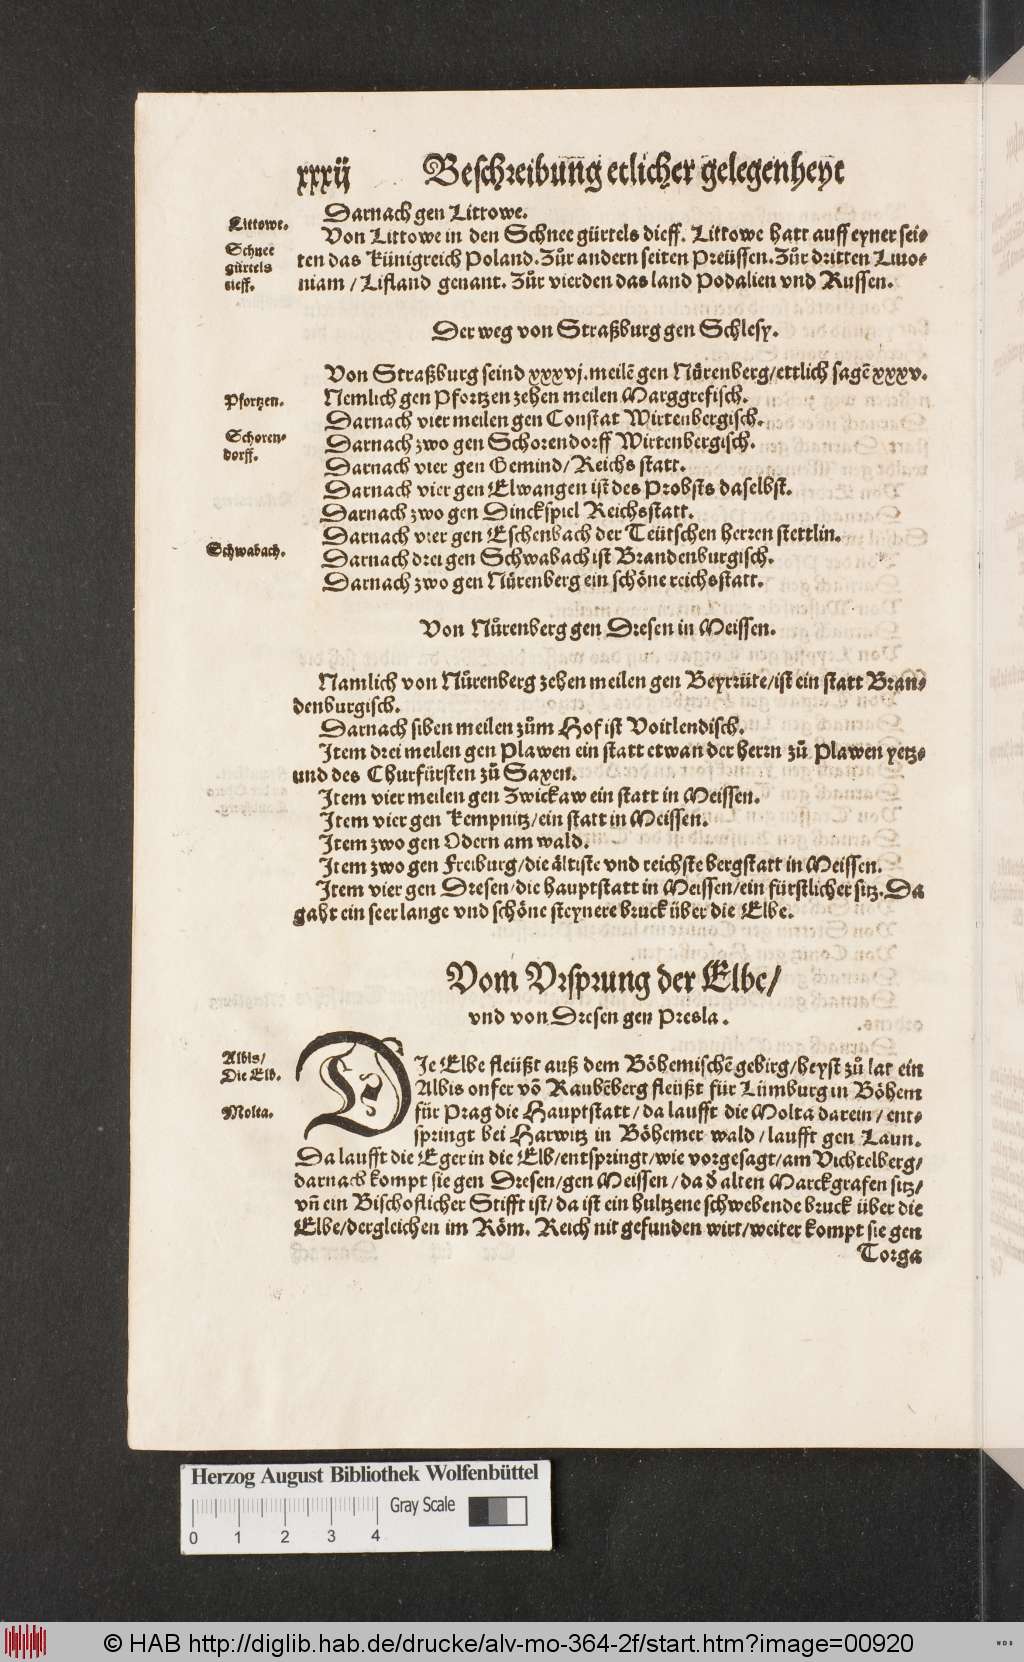 xxxij Beschreibung etlicher gelegenheyt
Darnach gen Littowe.
Littowe.
Von Littowe in den Schnee gürtels dieff. Littowe hatt auff eyner sei-
Schnee
gürtels
tieff.
ten das Künigreich Poland. Zůr andern seiten Preüssen. Zůr dritten Liuo-
niam / Lifland genant. Zůr vierden das land Podalien vnd Russen.
Der weg von Straßburg gen Schlesy.
Von Straßburg seind xxxvj. meilẽ gen Nůrenberg/ettlich sagẽ xxxv.
Pfortzen.
Nemlich gen Pfortzen zehen meilen Marggrefisch.
Darnach vier meilen gen Constat Wirtenbergisch.
Schoren-
dorff.
Darnach zwo gen Schorendorff Wirtenbergisch.
Darnach vier gen Gemind/Reichs statt.
Darnach vier gen Elwangen ist des Probsts daselbst.
Darnach zwo gen Dinckspiel Reichsstatt.
Darnach vier gen Eschenbach der Teütschen herren stettlin.
Schwabach.
Darnach drei gen Schwabach ist Brandenburgisch.
Darnach zwo gen Nůrenberg ein schöne reichsstatt.
Von Nůrenberg gen Dresen in Meissen.
Namlich von Nůrenberg zehen meilen gen Beyrrüte/ist ein statt Bran-
denburgisch.
Darnach siben meilen zům Hof ist Voitlendisch.
Item drei meilen gen Plawen ein statt etwan der herrn zů Plawen yetz-
und des Churfürsten zů Saxen.
Item vier meilen gen Zwickaw ein statt in Meissen.
Item vier gen Kempnitz/ein statt in Meissen.
Item zwo gen Odern am wald.
Item zwo gen Freiburg/die ältiste vnd reichste bergstatt in Meissen.
Item vier gen Dresen/die hauptstatt in Meissen/ein fürstlicher sitz. Da
gaht ein seer lange vnd schöne steynere bruck über die Elbe.
Vom Vrsprung der Elbe/
vnd von Dresen gen Presla.
Albis/
Die Elb.
Molta.
DIe Elbe fleüßt auß dem Böhemischẽ gebirg/heyst zů lat ein
Albis onfer võ Raubẽberg fleüßt für Limburg in Böhem
für Prag die Hauptstatt / da laufft die Molta darein / ent-
springt bei Harwitz in Böhemer wald / laufft gen Laun.
Da laufft die Eger in die Elb/entspringt/wie vorgesagt/am Vichtelberg/
darnach kompt sie gen Dresen/gen Meissen / da d̓ alten Marckgrafen sitz/
vñ ein Bischoflicher Stifft ist/ da ist ein hultzene schwebende bruck über die
Elbe/dergleichen im Röm. Reich nit gefunden wirt/weiter kompt sie gen
Torga
Herzog August Bibliothek Wolfenbüttel
Gray Scale
0 1 2 3 4
© HAB http://diglib.hab.de/drucke/alv-mo-364-2f/start.htm?image=00920